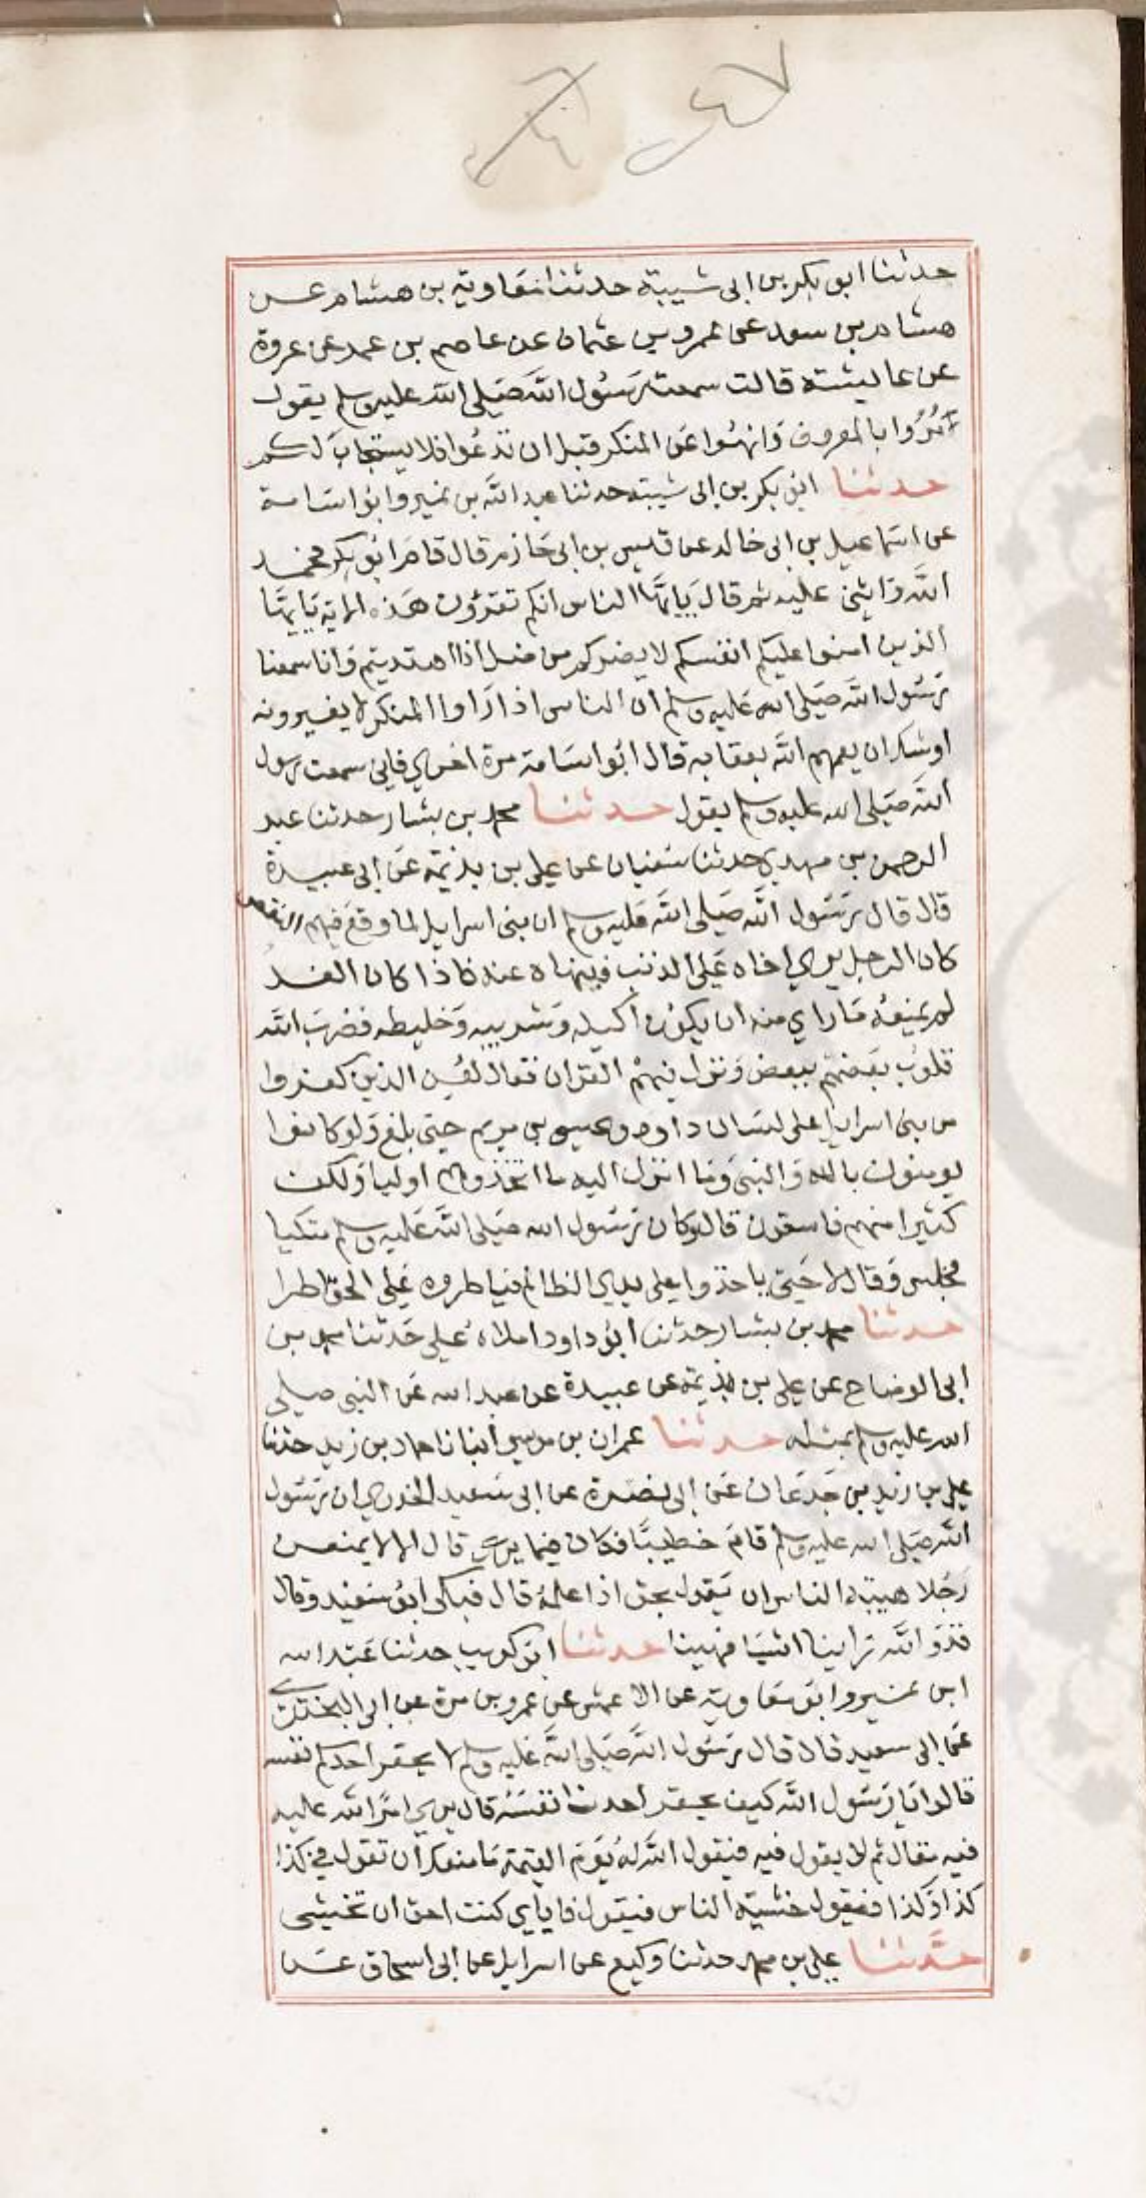 حدثنا ابو بكر بن ابى شيبة حدثنا معاوية بن هشام عن
هشام بن سعد عن عمرو بن عثمان عن عاصم بن عمد عن عروة
عن عايشة قالت سمعت رسول الله صلى الله عليه وسلم يقول
آمروا بالمعروف وانهوا عن المنكر قبل ان تدعوا فلا يستجاب لكم
حدثنا ابو بكر بن ابى شيبة حدثنا عبد الله بن نمير وابو اسامة
عن اسماعيل بن ابى خالد عن قيس بن ابى حازم قال قام ابو بكر فحمد
الله واثنى عليه ثم قال يايها الناس انكم تقرؤن هذه الاية يايها
الذين امنوا عليكم انفسكم لا يضركم من ضل اذا اهتديتم وانا سمعنا
رسول الله صلى الله عليه وسلم ان الناس اذا راوا المنكر لا يغيرونه
اوشك ان يعمهم الله بعقابه قال ابو اسامة مرة اخرى فانى سمعت رسول
الله صلى الله عليه وسلم يقول حدثنا محمد بن بشار حدثنا عبد
الرحمن بن مهدي حدثنا سفيان عن علي بن بذيمة عن ابى عبيدة
قال قال رسول الله صلى الله عليه وسلم ان بنى اسرايل لما وقع فيهم النقص
كان الرجل يرى اخاه على الذنب فينهاه عنه فاذا كان الغد
لم يمنعه ما راى منه ان يكون اكيله وشريبه وخليطه فضرب الله
قلوب بعضهم ببعض ونزل فيهم القران فقال لعن الذين كفروا
من بنى اسرايل على لسان داود وعيسى بن مريم حتى بلغ ولو كانوا
يومنون بالله والنبى وما انزل اليه ما اتخذوهم اوليا ولكن
كثيرا منهم فاسقون قال وكان رسول الله صلى الله عليه وسلم متكيا
فجلس وقال لا حتى ياخذوا على يدي الظالم فياطروه على الحق اطرا
حدثنا محمد بن بشار حدثنا ابو داود املاه على حدثنا محمد بن
ابى الوضاح عن علي بن بذيمة عن عبيدة عن عبد الله عن النبى صلى
الله عليه وسلم بمثله حدثنا عمران بن موسى انبانا حماد بن زيد حدثنا
علي بن زيد بن جدعان عن ابى نضرة عن ابى سعيد الخدري ان رسول
الله صلى الله عليه وسلم قام خطيبا فكان فيما قال الا لا يمنعن
رجلا هيبة الناس ان يقول بحق اذا علمه قال فبكى ابو سعيد وقال
قد والله راينا اشيا فهبنا حدثنا ابو كريب حدثنا عبد الله
ابن نمير وابو معاوية عن الاعمش عن عمرو بن مرة عن ابى البخترى
عن ابى سعيد قال قال رسول الله صلى الله عليه وسلم لا يحقر احدكم نفسه
قالوا يا رسول الله كيف يحقر احدنا نفسه قال يرى امر الله عليه
فيه مقال ثم لا يقول فيه فيقول الله له يوم القيمة ما منعك ان تقول فى كذا
كذا وكذا فيقول خشية الناس فيقول فاياي كنت احق ان تخشى
حدثنا علي بن محمد حدثنا وكيع عن اسرايل عن ابى اسحاق عن